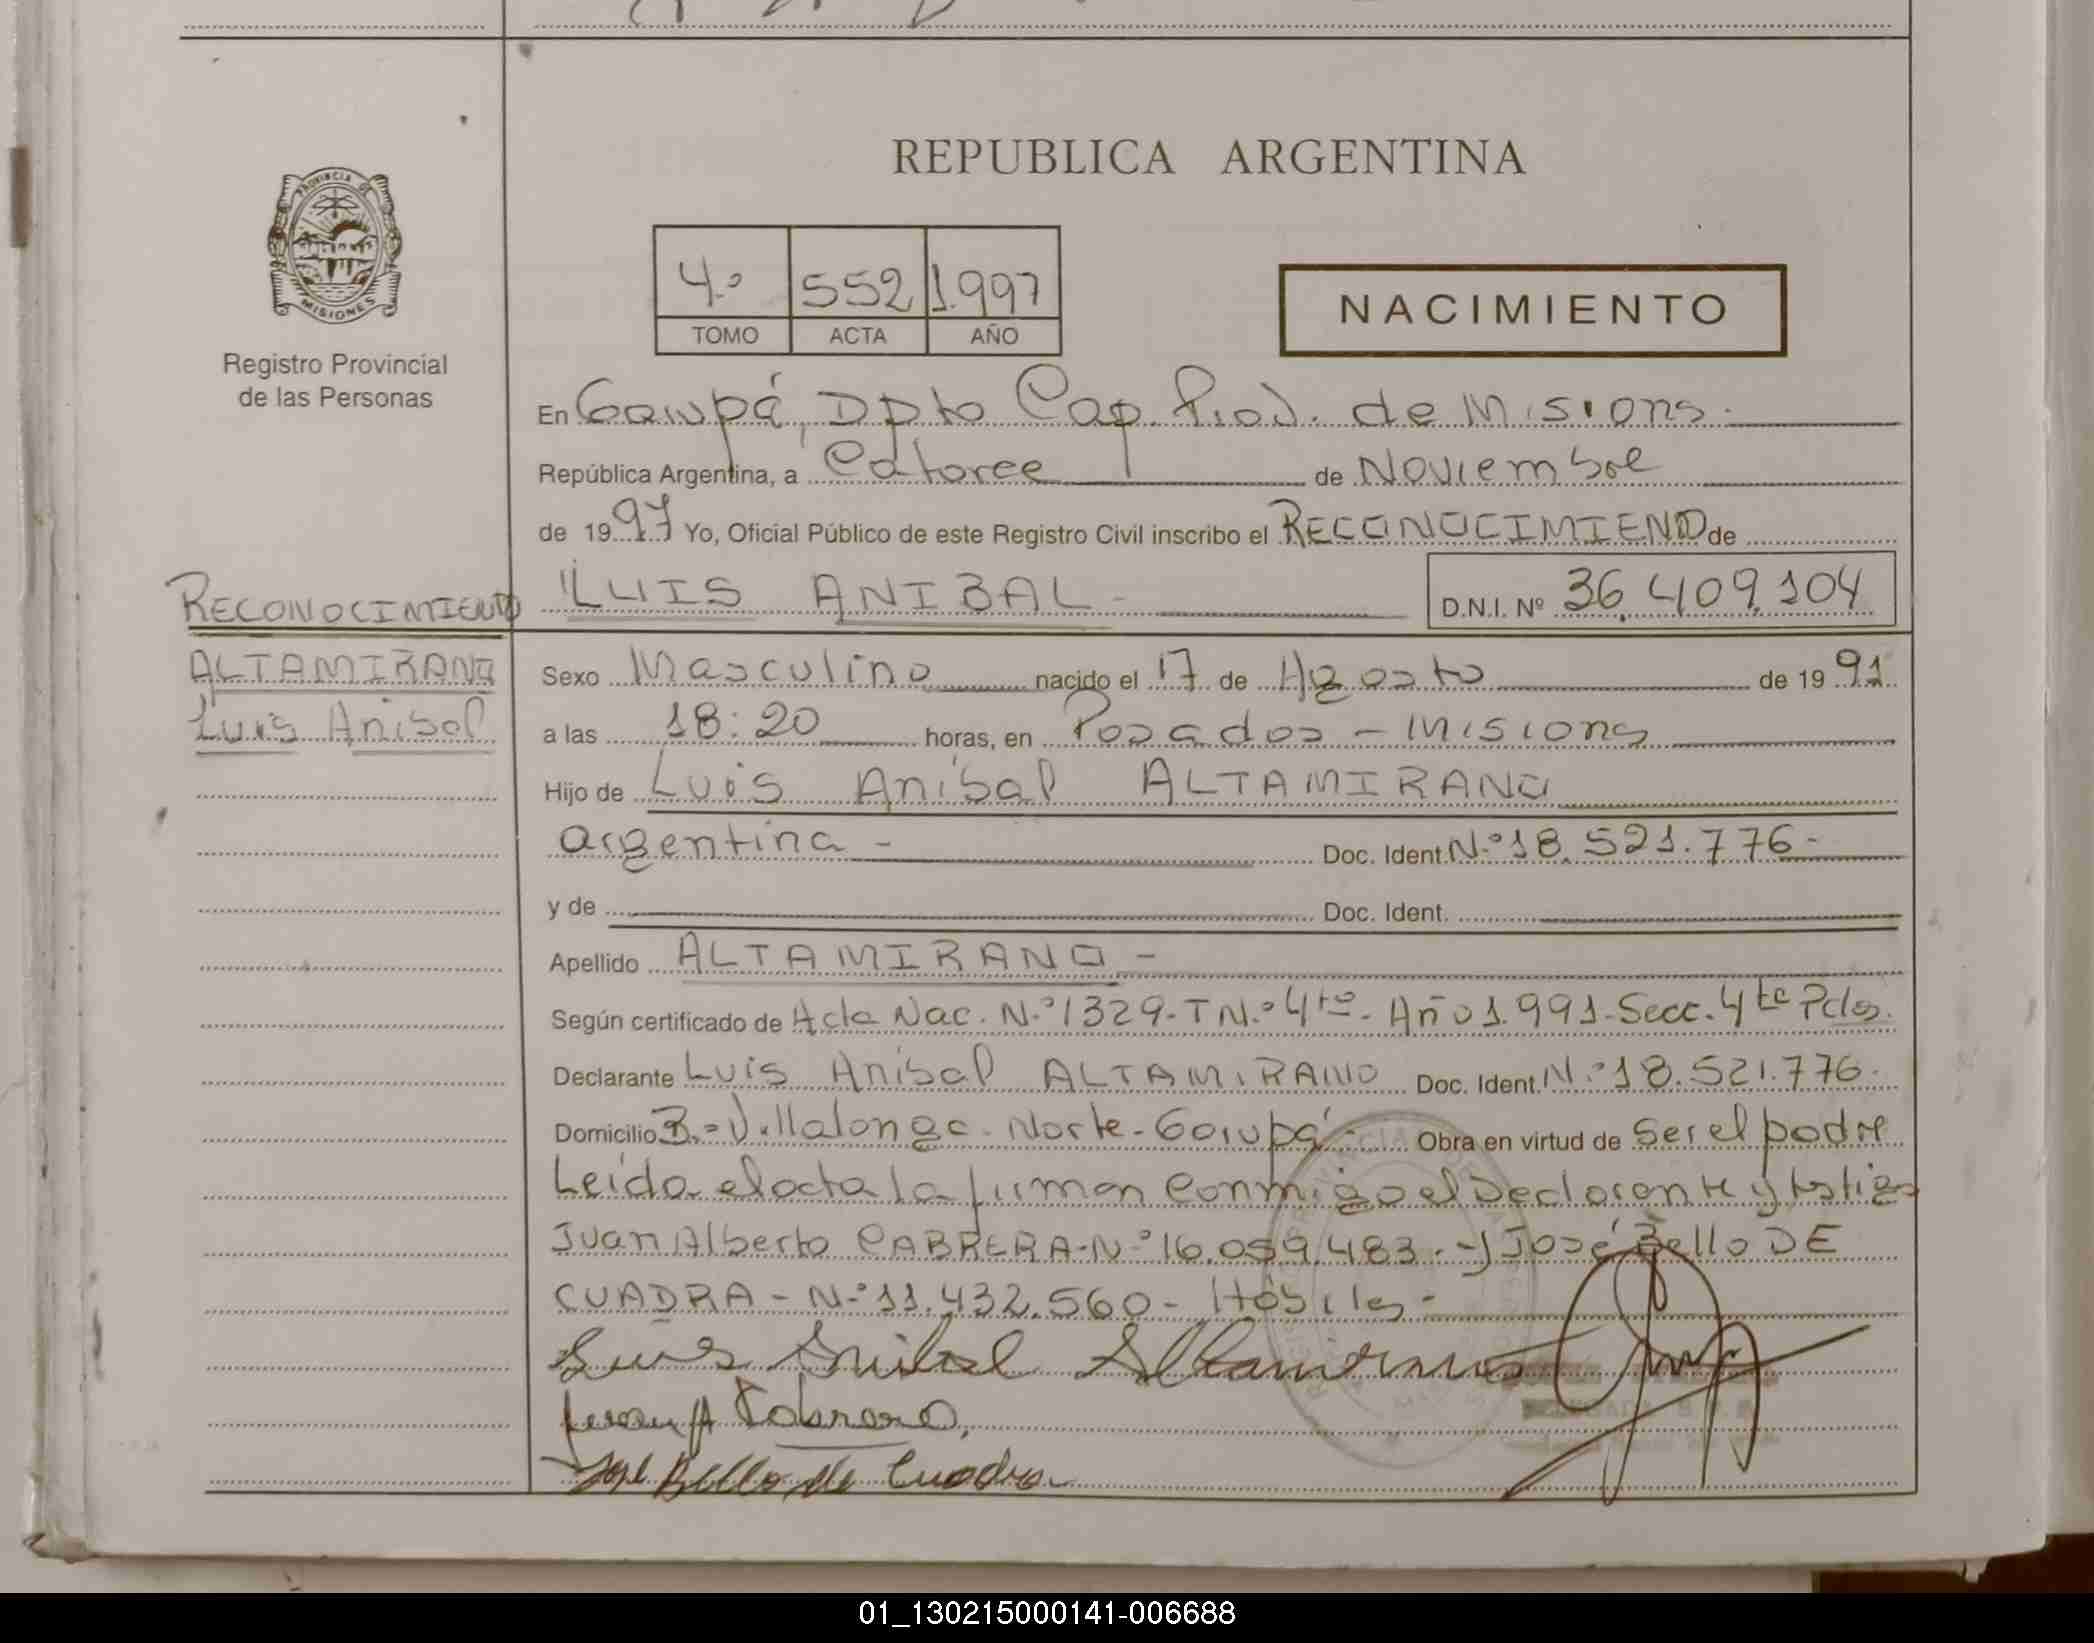 REPUBLICA ARGENTINA
PROVINCIA DE
MISIONES
Registro Provincial
de las Personas
4.º 552 1.997
TOMO ACTA AÑO
NACIMIENTO
En Garupá, Dpto Cap. Prov. de Misions.
República Argentina, a Catorce de Noviembre
de 1997 Yo, Oficial Público de este Registro Civil inscribo el RECONOCIMIENTO de
LUIS ANIBAL - D.N.I. Nº 36.409.104
RECONOCIMIENTO
ALTAMIRANO
Luis Anibal
Sexo Masculino nacido el 17 de Agosto de 1991
a las 18:20 horas, en Posadas - Misions
Hijo de Luis Anibal ALTAMIRANO
argentina - Doc. Ident. N.º 18.521.776-
y de Doc. Ident.
Apellido ALTAMIRANO -
Según certificado de Acta Nac. N.º 1329- T N.º 4to- Año 1.991- Secc. 4ta Pdas.
Declarante Luis Anibal ALTAMIRANO Doc. Ident. N.º 18.521.776-
Domicilio B.º Villalonga- Norte- Garupá- Obra en virtud de Ser el padre
Leída el acta la firman conmigo el Declarante y testigos
Juan Alberto CABRERA- N.º 16.059.483.- y José Bello DE
CUADRA - N.º 11.432.560- Hábiles-
Luis Anibal Altamirano
Juan A Cabrera,
José Bello de Cuadra
01_130215000141-006688